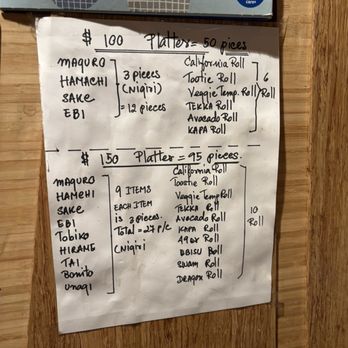 $ 100 Platter = 50 pices
MAQURO
HAMACHI
SAKE
EBI
3 pieces
(Nigiri)
= 12 pieces
California Roll
Tootie Roll
Veggie Temp. Roll
TEKKA Roll
Avocado Roll
KAPA Roll
6
Roll
$ 150 Platter = 95 pieces
MAQURO
HAMECHI
SAKE
EBI
Tobiko
HIRAME
TAI
Bonito
Unagi
9 ITEMS
EACH ITEM
is 3 pieces.
Total = 27 p/c
(Nigiri)
California Roll
Tootie Roll
Veggie Temp Roll
TEKKA Roll
Avocado Roll
KAPA Roll
49er Roll
EBISU Roll
Roll
DRAGON Roll
10
Roll